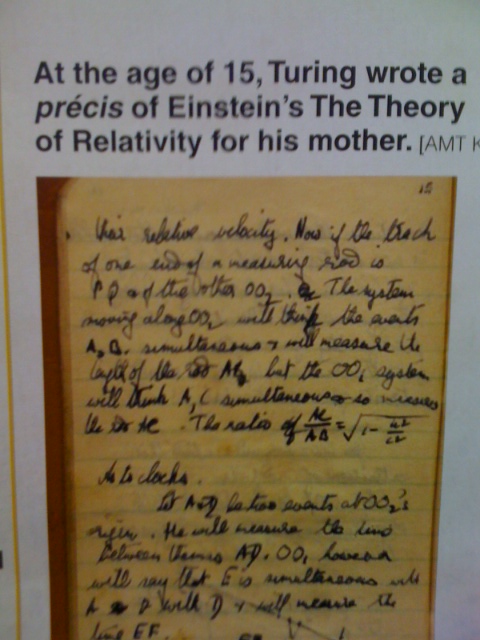 At the age of 15, Turing wrote a
précis of Einstein's The Theory
of Relativity for his mother. [AMT K
15
their relative velocity. Now if the track
of one end of a measuring rod is
P Q & of the other OO₂. The system
moving along OO₂ will think the events
A, B. simultaneous & will measure the
length of the rod AB, but the OO₁ system
will think A, C simultaneous & so measures
the AC. The ratio of AC/AB = √1 - u²/c²
As to clocks.
Let A & D be two events at OO₂'s
origin. He will measure the time
between them as AD. OO₁ however
will say that E is simultaneous with
A & D with D & will measure the
time EF.